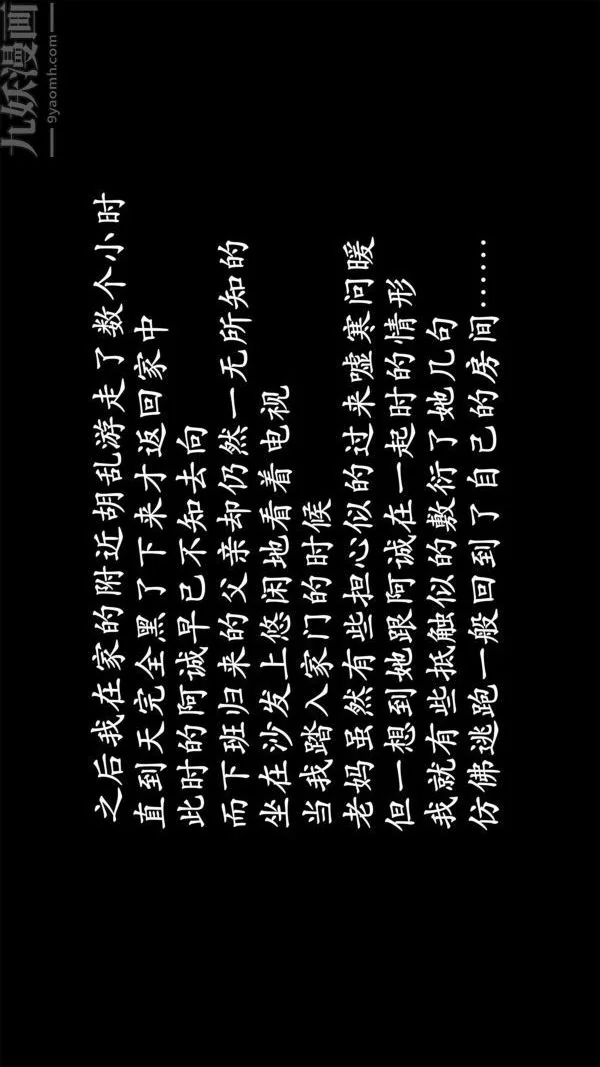 九妖漫画
9yaomh.com
之后我在家的附近胡乱游走了数个小时
直到天完全黑了下来才返回家中
此时的阿诚早已不知去向
而下班归来的父亲却仍然一无所知的
坐在沙发上悠闲地看着电视
当我踏入家门的时候
老妈虽然有些担心似的过来嘘寒问暖
但一想到她跟阿诚在一起时的情形
我就有些抵触似的敷衍了她几句
仿佛逃跑一般回到了自己的房间……